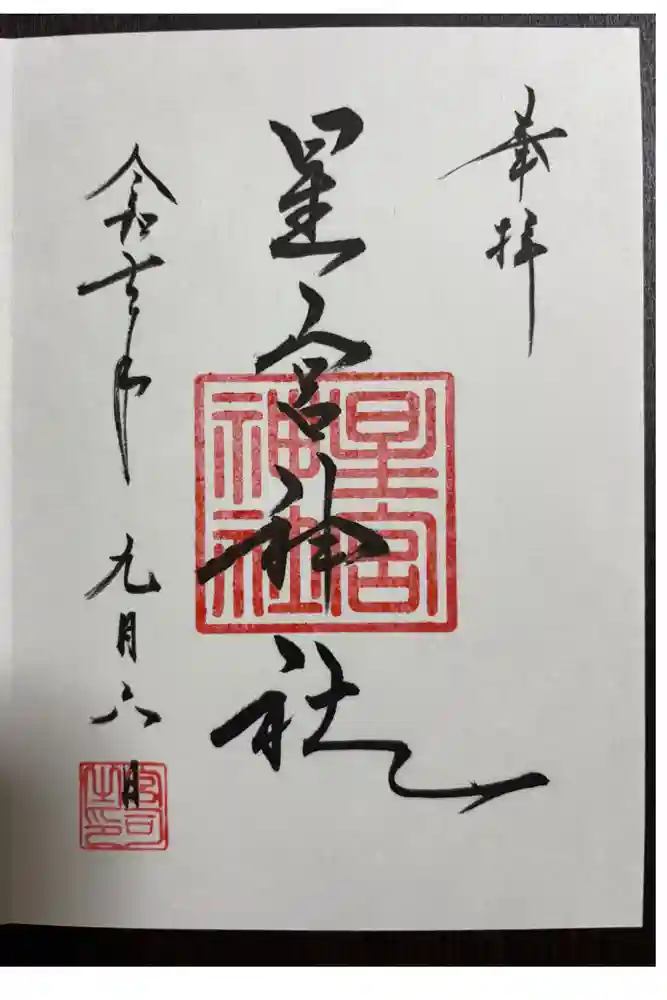 奉拝
星宮神社
星宮
神社
令和年九月六日
宮司
之印